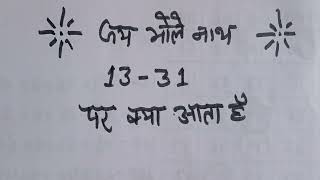 जय भोले नाथ
13-31
पर क्या आता है